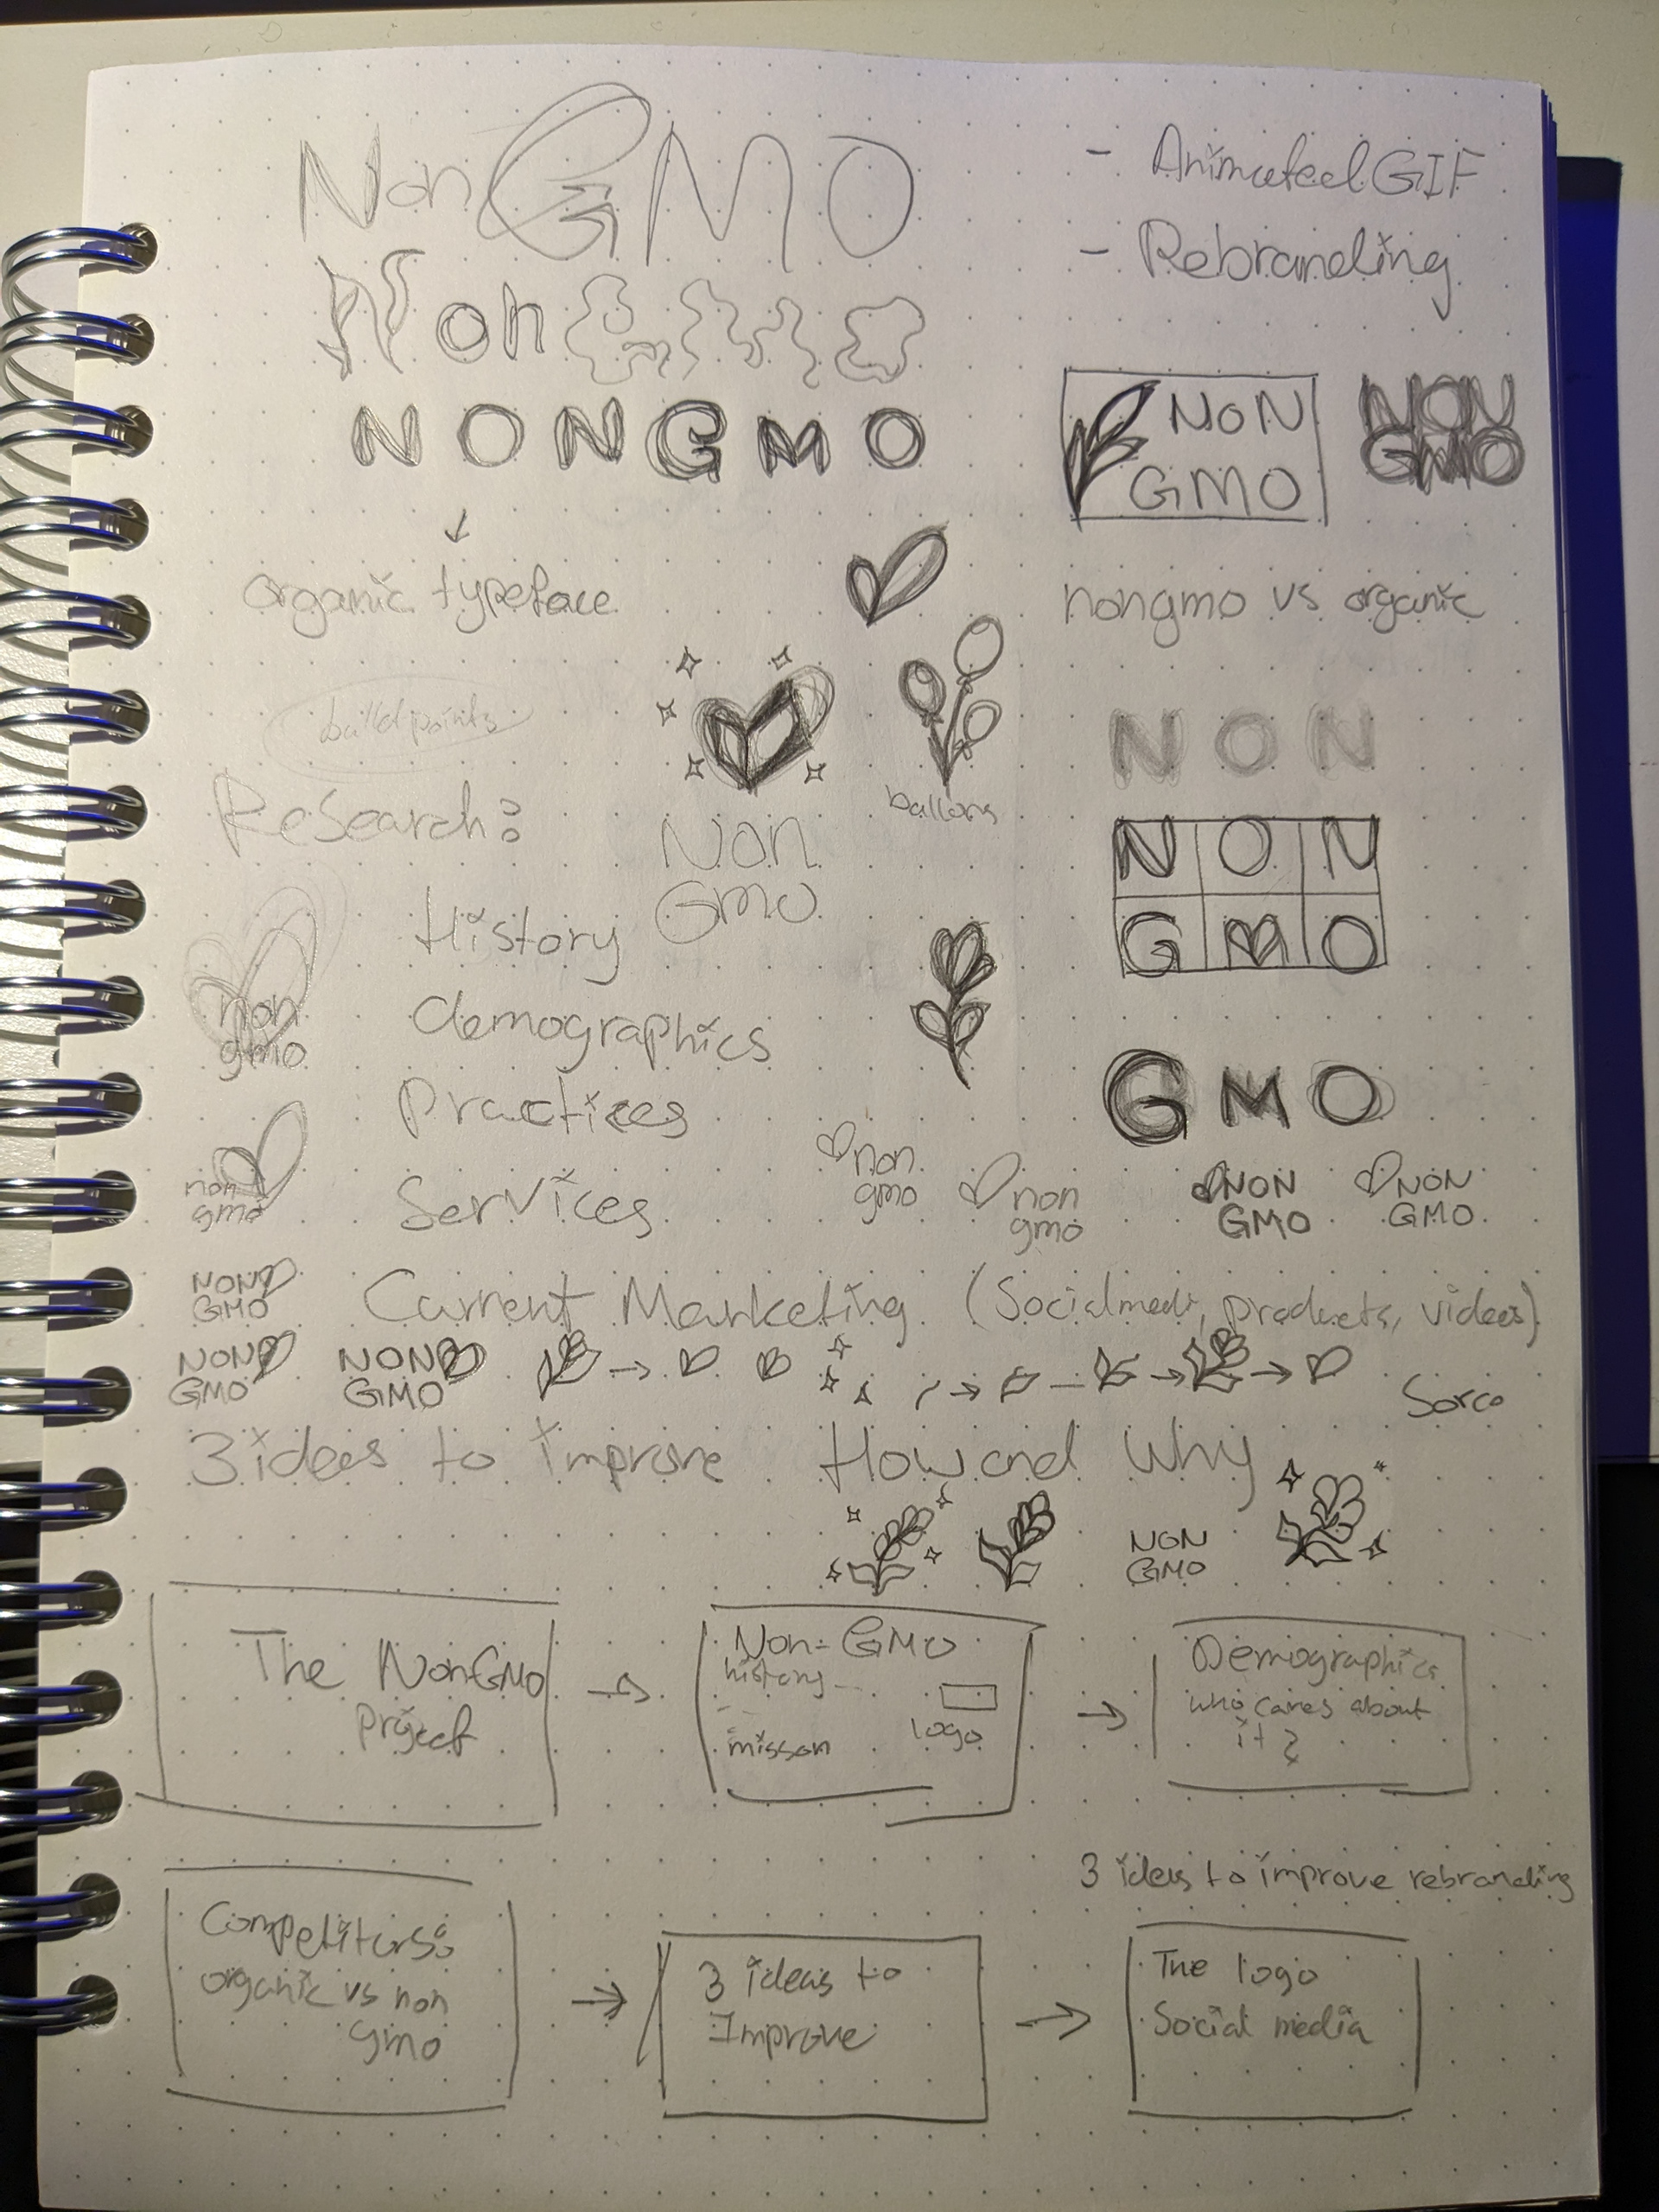 Non GMO
- Animated GIF
- Rebranding
Non GMO
NONGMO
NON
GMO
NON
GMO
organic typeface
nongmo vs organic
NON
ballons
Research:
Non
GMO
NON
GMO
History
non
gmo
demographics
GMO
Practices
non
gmo
Services
non
gmo
non
gmo
NON
GMO
NON
GMO
NON
GMO
Current Marketing (Socialmedi, products, videos)
NON
GMO
NON
GMO
3 ideas to improve How and Why
NON
GMO
The NonGMO
Project
Non-GMO
history
misson
logo
Demographics
who cares about
it?
3 ideas to improve rebranding
Competitors:
organic vs non
gmo
3 ideas to
Improve
The logo
Social media